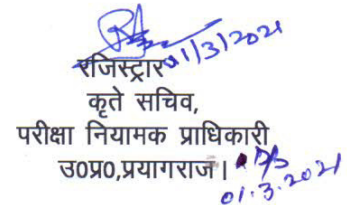 01/3/2021
रजिस्ट्रार
कृते सचिव,
परीक्षा नियामक प्राधिकारी
उ०प्र०,प्रयागराज।
01.3.2021